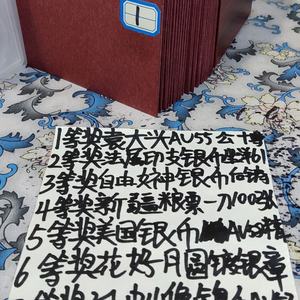 1
1等奖袁大头AU55公十博
2等奖法属印支银币坐洋1
3等奖自由女神银币
4等奖新疆粮票一刀100张
5等奖美国银币AU53精
6等奖花好月圆银章